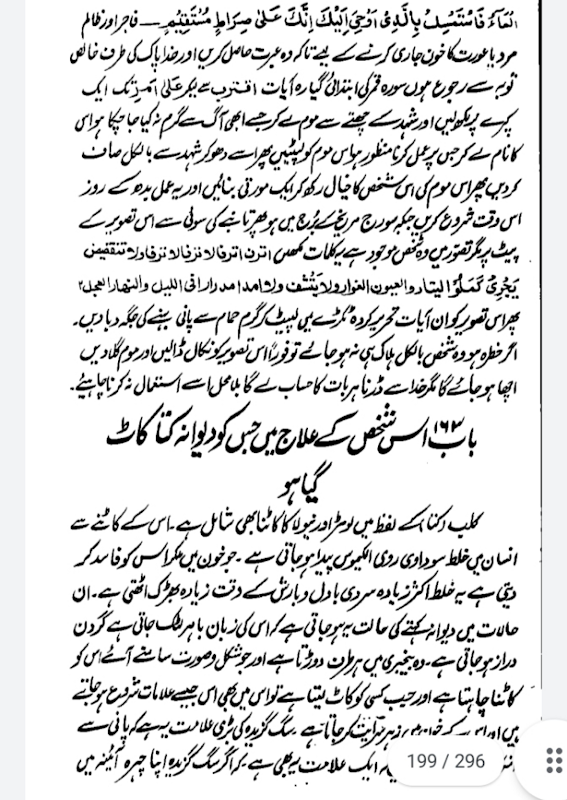 الماء فَاسْتَمْسِكْ بِالَّذِي أُوحِيَ إِلَيْكَ إِنَّكَ عَلَىٰ صِرَاطٍ مُّسْتَقِيمٍ — فاجر اور ظالم
مرد یا عورت کا خون جاری کرنے کے لیے تاکہ وہ عبرت حاصل کریں اور خدا پاک کی طرف خالص
توبہ سے رجوع ہوں سورہ قمر کی ابتدائی گیارہ آیات اقتربت سے لیکر علیٰ امر تک ایک
کپڑے پر لکھ لیں اور شہد کے چھتے سے موم لے کر جسے ابھی آگ سے گرم نہ کیا جا چکا ہو اس
کا نام لے کر جس پر عمل کرنا منظور ہو اس موم کو لپیٹیں پھر اسے دھو کر شہد سے بالکل صاف
کردیں پھر اس موم کی اس شخص کا خیال رکھ کر ایک مورتی بنائیں اور یہ عمل بدھ کے روز
اس وقت شروع کریں جبکہ سورج مریخ کے برج میں ہو پھر تانبے کی سوئی سے اس تصویر کے
پیٹ پر مگر تصور میں وہ شخص موجود ہے یہ کلمات لکھیں اترن اترفا لا نزفا لا نزفا ولا تنقضیض
یَجْرِیْ کَمَلُوْا والعیون الغوار ولا یَنْشَف ولا مدرارا فی اللیل والنهار العجل ۲
پھر اس تصویر کو ان آیات تحریر کردہ ٹکڑے میں لپیٹ کر گرم حمام سے پانی بہنے کی جگہ دبا دیں۔
اگر خطرہ ہو وہ شخص بالکل ہلاک ہی نہ ہو جائے تو فوراً اس تصویر کو نکال ڈالیں اور موم گلا دیں
اچھا ہو جائے گا مگر خدا سے ڈرنا ہر بات کا حساب لے گا بلا محل اسے استعمال نہ کرنا چاہیئے۔
باب ۱۶۳ اس شخص کے علاج میں جس کو دیوانہ کتا کاٹ
گیا ہو
کلب (کتا) کے لفظ میں لومڑ اور نیولا کا کاٹنا بھی شامل ہے۔ اس کے کاٹنے سے
انسان میں خلط سوداوی ردی الکیموس پیدا ہو جاتی ہے۔ جو خون میں ملکر اس کو فاسد کر
دیتی ہے یہ خلط اکثر زیادہ سردی بادل و بارش کے وقت زیادہ بھڑک اٹھتی ہے۔ ان
حالات میں دیوانہ کتے کی حالت یہ ہو جاتی ہے کہ اس کی زبان باہر لٹک جاتی ہے گردن
دراز ہو جاتی ہے۔ وہ بیخبری میں ہر طرف دوڑتا ہے اور جو شکل و صورت سامنے آئے اس کو
کاٹنا چاہتا ہے اور جب کسی کو کاٹ لیتا ہے تو اس میں بھی اس جیسے علامات شروع ہو جاتے
ہیں اور اس کے خون میں زہر سرایت کر جاتا ہے۔ سگ گزیدہ کی بڑی علامت یہ ہے کہ پانی سے
ایک علامت یہ بھی ہے کہ اگر سگ گزیدہ اپنا چہرہ آئینہ میں
199 / 296